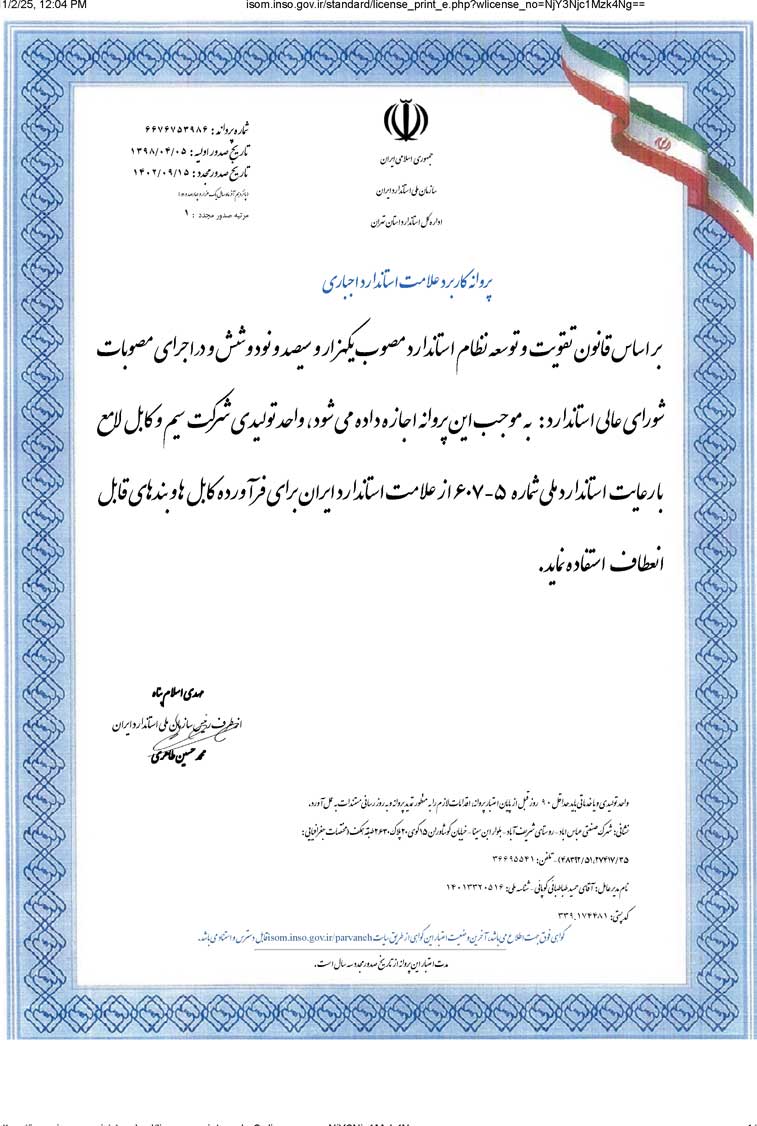 1/2/25, 12:04 PM
isom.inso.gov.ir/standard/license_print_e.php?wlicense_no=NjY3Njc1Mzk4Ng==
شماره پروانه : ۶۶۷۶۷۵۳۹۸۶
تاریخ صدور اولیه : ۱۳۹۸/۰۴/۰۵
تاریخ صدور مجدد : ۱۴۰۲/۰۹/۱۵
مرتبه صدور مجدد : ۱
جمهوری اسلامی ایران
سازمان ملی استاندارد ایران
اداره کل استاندارد استان تهران
پروانه کاربرد علامت استاندارد اجباری
بر اساس قانون تقویت و توسعه نظام استاندارد مصوب یکهزار و سیصد و نود و شش و در اجرای مصوبات
شورای عالی استاندارد : به موجب این پروانه اجازه داده می شود، واحد تولیدی شرکت سیم و کابل لامع
با رعایت استاندارد ملی شماره ۵-۶۰۷ از علامت استاندارد ایران برای فرآورده کابل ها و بندهای قابل
انعطاف استفاده نماید.
مهدی اسلام پناه
از طرف رئیس سازمان ملی استاندارد ایران
محمد حسین طاهری
واحد تولیدی و یا خدماتی باید حداقل ۹۰ روز قبل از پایان اعتبار پروانه، اقدامات لازم را به منظور تمدید پروانه و به روز رسانی مستندات به عمل آورد.
نشانی : شهرک صنعتی عباس اباد - روستای شریف آباد - بلوار ابن سینا - خیابان کشاورزان ۱۵ کوی ۲۰ پلاک ۲۶۳۰ طبقه همکف و مختصات جغرافیایی :
(۴۸۳۹۲/۵۱,۲۷۴۱۷/۳۵) - تلفن : ۳۶۶۹۵۵۴۱
نام مدیرعامل : آقای حمید طباطبائی کوپائی - شناسه ملی : ۱۴۰۱۳۳۲۰۵۱۶
کد پستی : ۳۳۹۱۷۴۴۸۱
گواهی فوق جهت اطلاع می باشد، آخرین وضعیت اعتبار این گواهی از طریق سایت isom.inso.gov.ir/parvaneh قابل دسترس و استناد می باشد.
مدت اعتبار این پروانه از تاریخ صدور مجدد سه سال است.